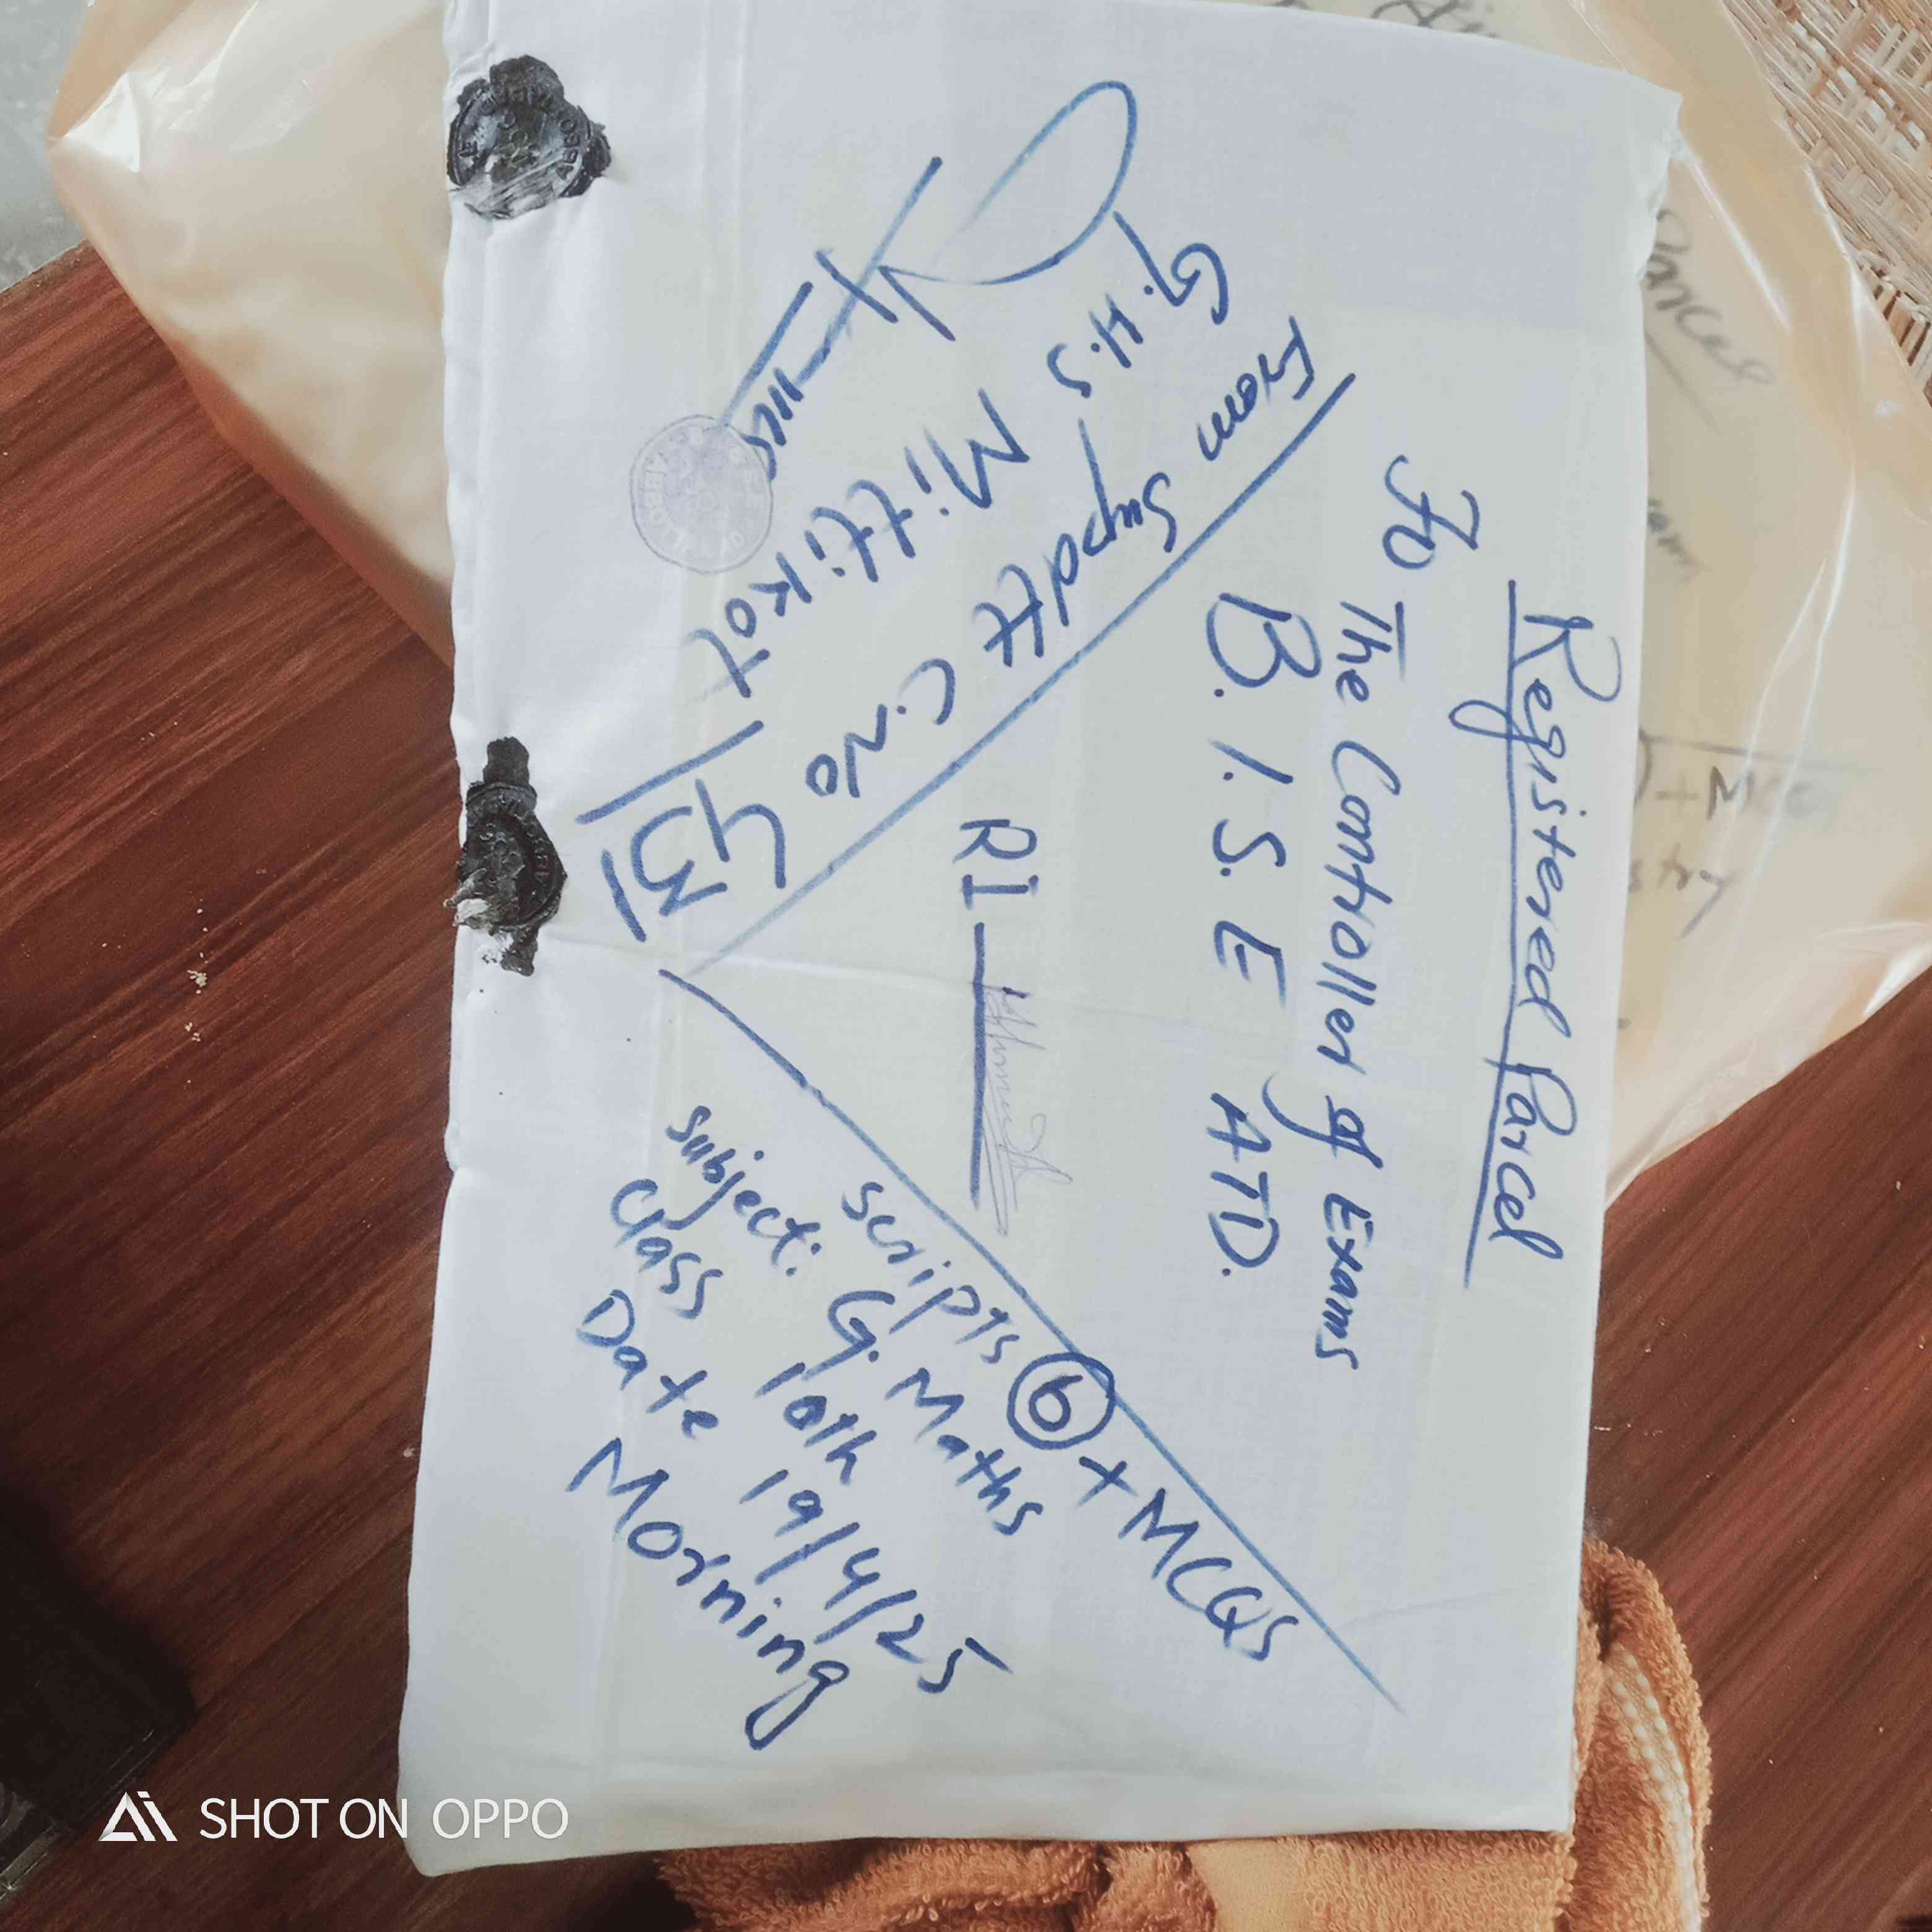 Registered Parcel
To The Controller of Exams
B.I.S.E ATD.
RI
From Supdtt C.No
G.H.S Mittikot
Scripts 6 + MCQS
Subject: G. Maths
Class 10th
Date 19/4/25
Morning
Parcel
+ MCQ
stry
SHOT ON OPPO